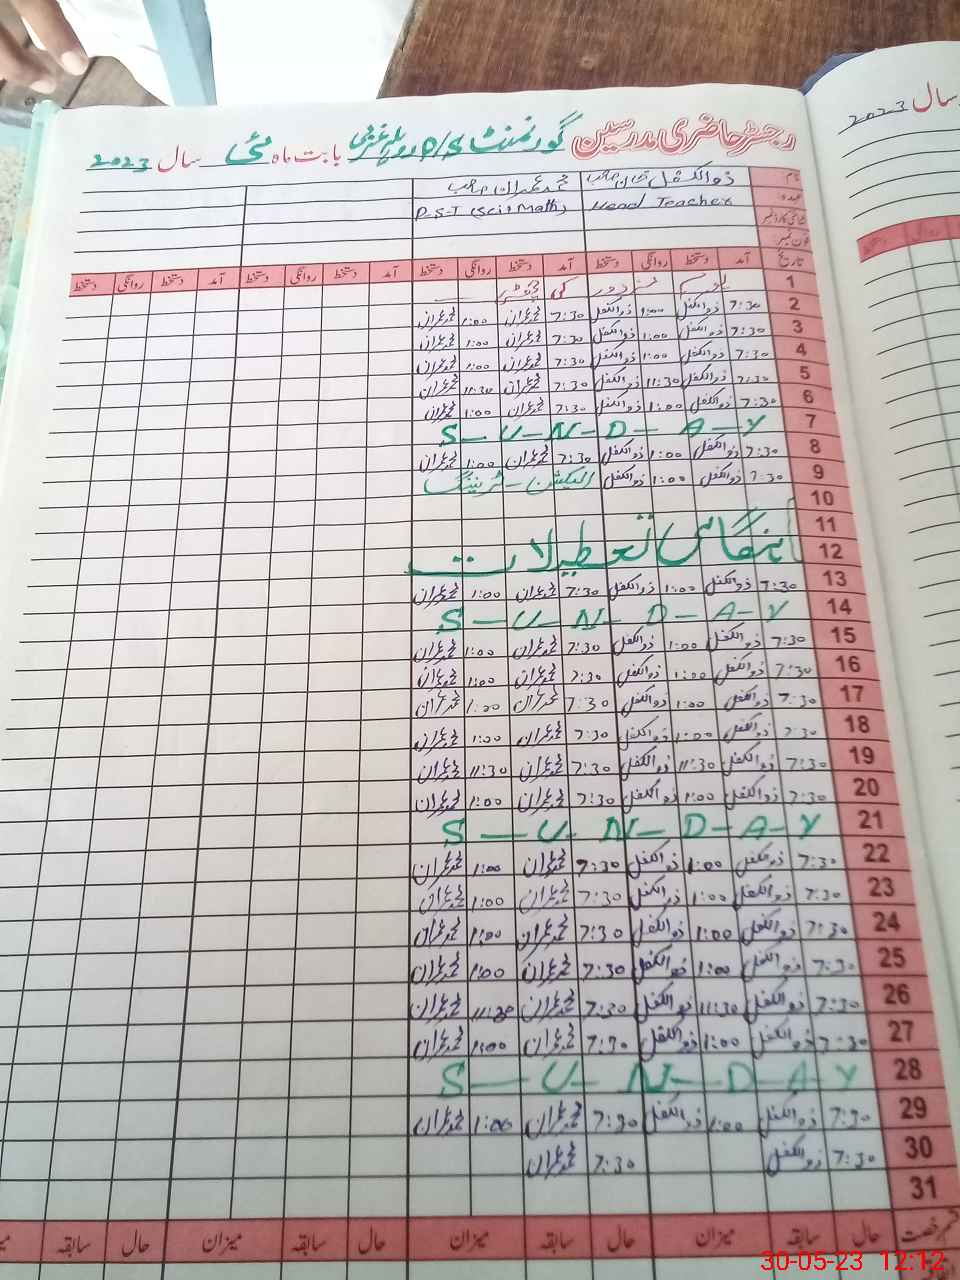 رجسٹر حاضری مدرسین گورنمنٹ P/S بابت ماہ مئی سال 2023
سال 2023
نام ذوالکفل خان صاحب محمد عمران صاحب
عہدہ Head Teacher P-S-T (Sci+Math)
شناختی کارڈ نمبر
فون نمبر
تاریخ آمد دستخط روانگی دستخط آمد دستخط روانگی دستخط آمد دستخط روانگی دستخط آمد دستخط روانگی دستخط
1 یوم مزدور کی چھٹی
2 7:30 ذوالکفل 1:00 ذوالکفل 7:30 محمد عمران 1:00 محمد عمران
3 7:30 ذوالکفل 1:00 ذوالکفل 7:30 محمد عمران 1:00 محمد عمران
4 7:30 ذوالکفل 1:00 ذوالکفل 7:30 محمد عمران 1:00 محمد عمران
5 7:30 ذوالکفل 11:30 ذوالکفل 7:30 محمد عمران 11:30 محمد عمران
6 7:30 ذوالکفل 1:00 ذوالکفل 7:30 محمد عمران 1:00 محمد عمران
7 S-U-N-D-A-Y
8 7:30 ذوالکفل 1:00 ذوالکفل 7:30 محمد عمران 1:00 محمد عمران
9 7:30 ذوالکفل 1:00 ذوالکفل الیکشن - ٹریننگ
10
11 ہنگامی تعطیلات
12
13 7:30 ذوالکفل 1:00 ذوالکفل 7:30 محمد عمران 1:00 محمد عمران
14 S-U-N-D-A-Y
15 7:30 ذوالکفل 1:00 ذوالکفل 7:30 محمد عمران 1:00 محمد عمران
16 7:30 ذوالکفل 1:00 ذوالکفل 7:30 محمد عمران 1:00 محمد عمران
17 7:30 ذوالکفل 1:00 ذوالکفل 7:30 محمد عمران 1:00 محمد عمران
18 7:30 ذوالکفل 1:00 ذوالکفل 7:30 محمد عمران 1:00 محمد عمران
19 7:30 ذوالکفل 11:30 ذوالکفل 7:30 محمد عمران 11:30 محمد عمران
20 7:30 ذوالکفل 1:00 ذوالکفل 7:30 محمد عمران 1:00 محمد عمران
21 S-U-N-D-A-Y
22 7:30 ذوالکفل 1:00 ذوالکفل 7:30 محمد عمران 1:00 محمد عمران
23 7:30 ذوالکفل 1:00 ذوالکفل 7:30 محمد عمران 1:00 محمد عمران
24 7:30 ذوالکفل 1:00 ذوالکفل 7:30 محمد عمران 1:00 محمد عمران
25 7:30 ذوالکفل 1:00 ذوالکفل 7:30 محمد عمران 1:00 محمد عمران
26 7:30 ذوالکفل 11:30 ذوالکفل 7:30 محمد عمران 11:30 محمد عمران
27 7:30 ذوالکفل 1:00 ذوالکفل 7:30 محمد عمران 1:00 محمد عمران
28 S-U-N-D-A-Y
29 7:30 ذوالکفل 1:00 ذوالکفل 7:30 محمد عمران 1:00 محمد عمران
30 7:30 ذوالکفل 7:30 محمد عمران
31
قسم رخصت حال سابقہ میزان حال سابقہ میزان حال سابقہ میزان حال سابقہ
30-05-23 12:12